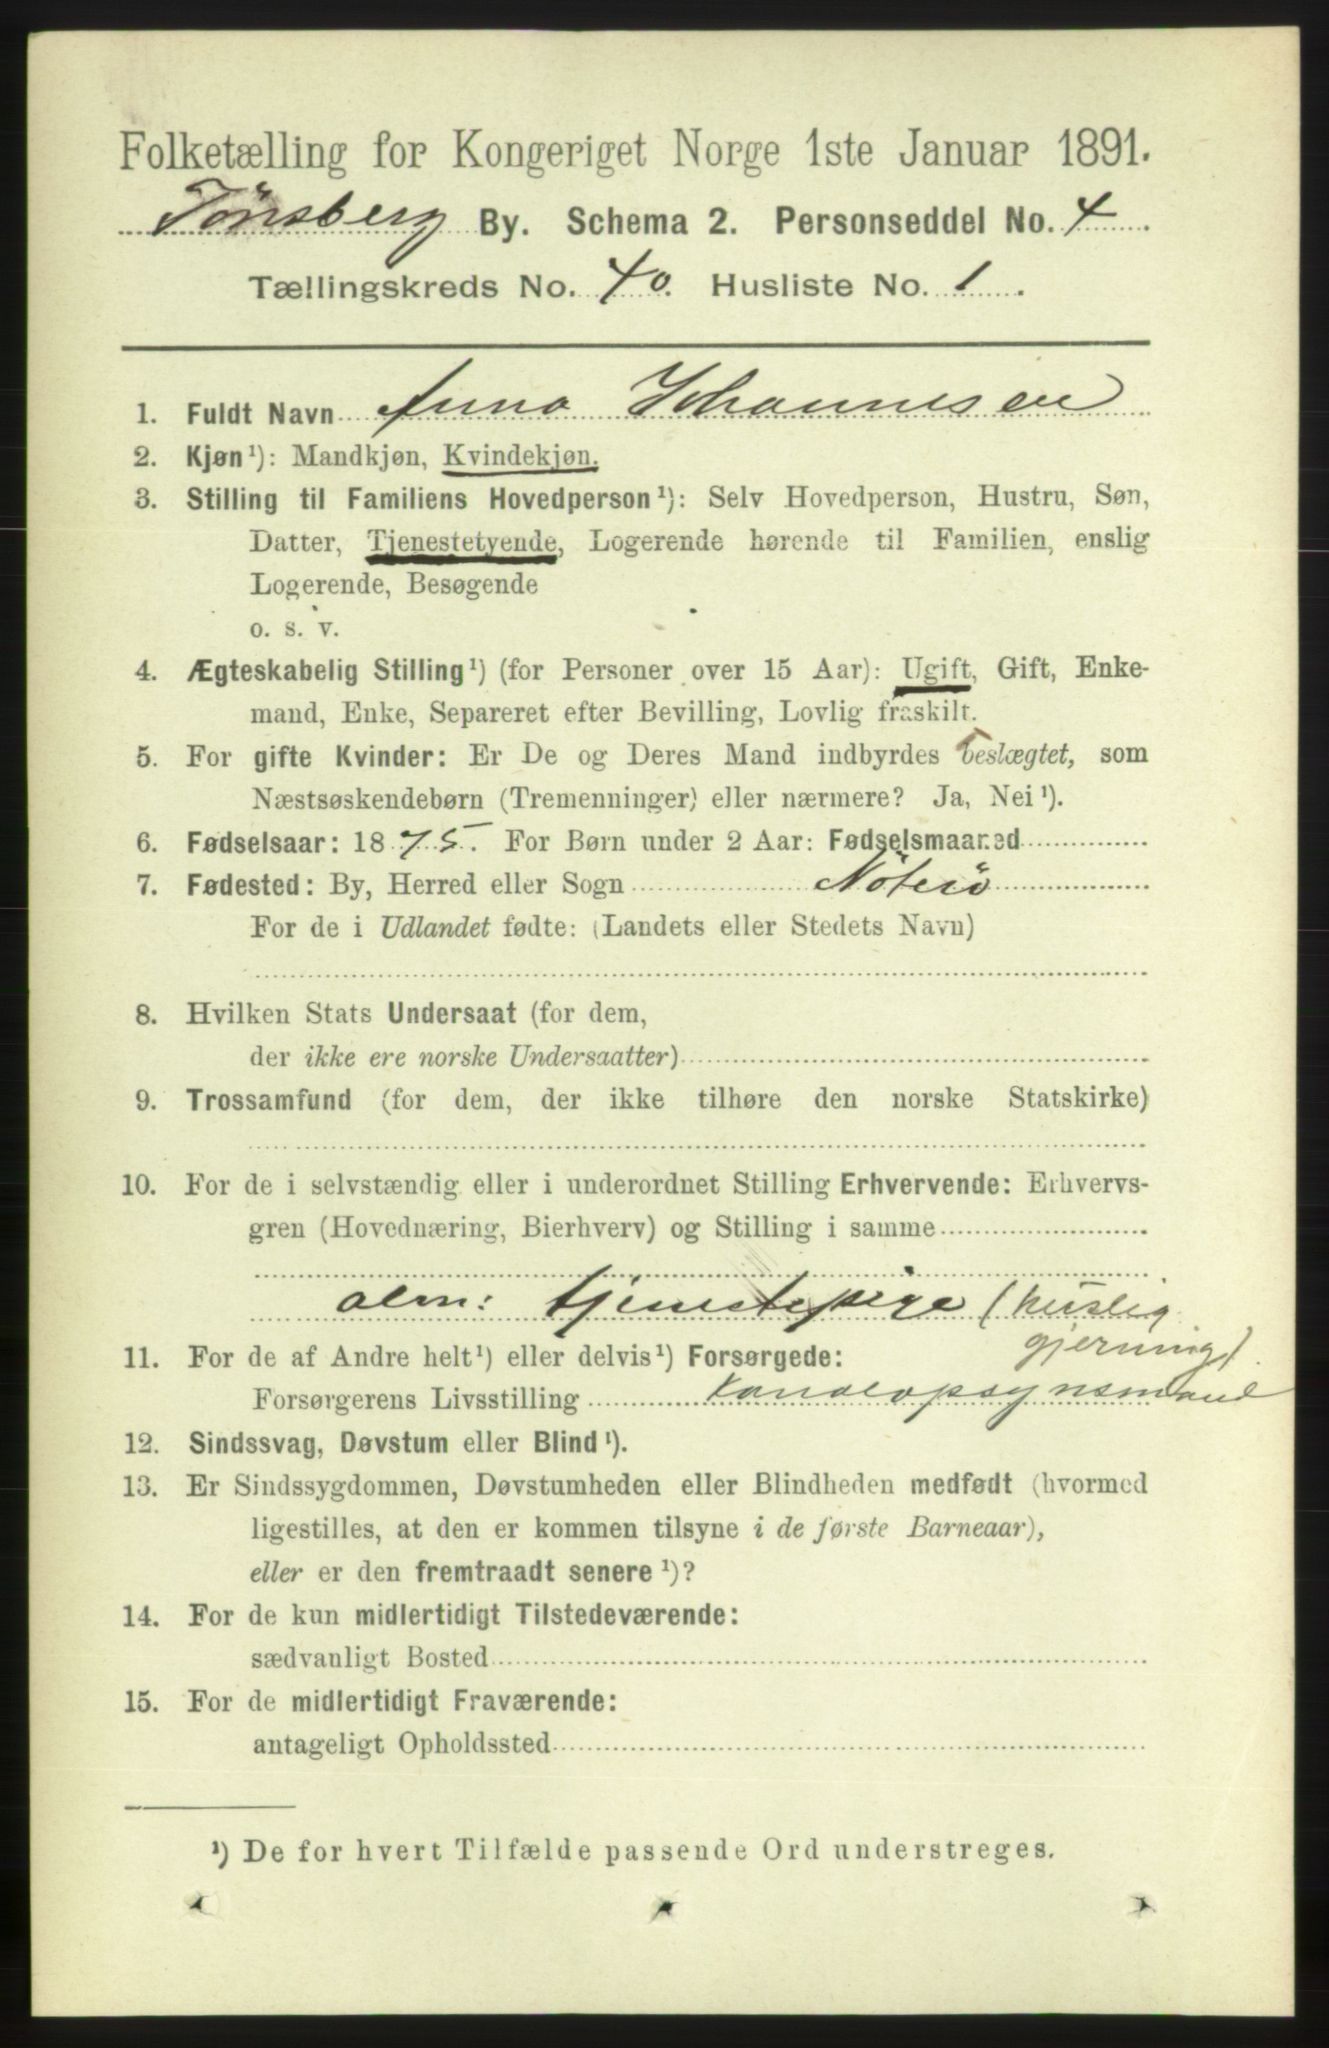 Folketælling for Kongeriget Norge 1ste Januar 1891.
Tønsberg By. Schema 2. Personseddel No. 4
Tællingskreds No. 40. Husliste No. 1.
1. Fuldt Navn Anna Johannesen
2. Kjøn¹): Mandkjøn, Kvindekjøn.
3. Stilling til Familiens Hovedperson¹): Selv Hovedperson, Hustru, Søn,
Datter, Tjenestetyende, Logerende hørende til Familien, enslig
Logerende, Besøgende
o. s. v.
4. Ægteskabelig Stilling¹) (for Personer over 15 Aar): Ugift, Gift, Enke-
mand, Enke, Separeret efter Bevilling, Lovlig fraskilt.
5. For gifte Kvinder: Er De og Deres Mand indbyrdes beslægtet, som
Næstsøskendebørn (Tremenninger) eller nærmere? Ja, Nei¹).
6. Fødselsaar: 1875. For Børn under 2 Aar: Fødselsmaaned
7. Fødested: By, Herred eller Sogn Nöterö
For de i Udlandet fødte: (Landets eller Stedets Navn)
8. Hvilken Stats Undersaat (for dem,
der ikke ere norske Undersaatter)
9. Trossamfund (for dem, der ikke tilhøre den norske Statskirke)
10. For de i selvstændig eller i underordnet Stilling Erhvervende: Erhvervs-
gren (Hovednæring, Bierhverv) og Stilling i samme
alm: tjenestepige (huslig
gjerning)
11. For de af Andre helt¹) eller delvis¹) Forsørgede:
Forsørgerens Livsstilling Kanalopsynsmand
12. Sindssvag, Døvstum eller Blind¹).
13. Er Sindssygdommen, Døvstumheden eller Blindheden medfødt (hvormed
ligestilles, at den er kommen tilsyne i de første Barneaar),
eller er den fremtraadt senere¹)?
14. For de kun midlertidigt Tilstedeværende:
sædvanligt Bosted
15. For de midlertidigt Fraværende:
antageligt Opholdssted
¹) De for hvert Tilfælde passende Ord understreges.